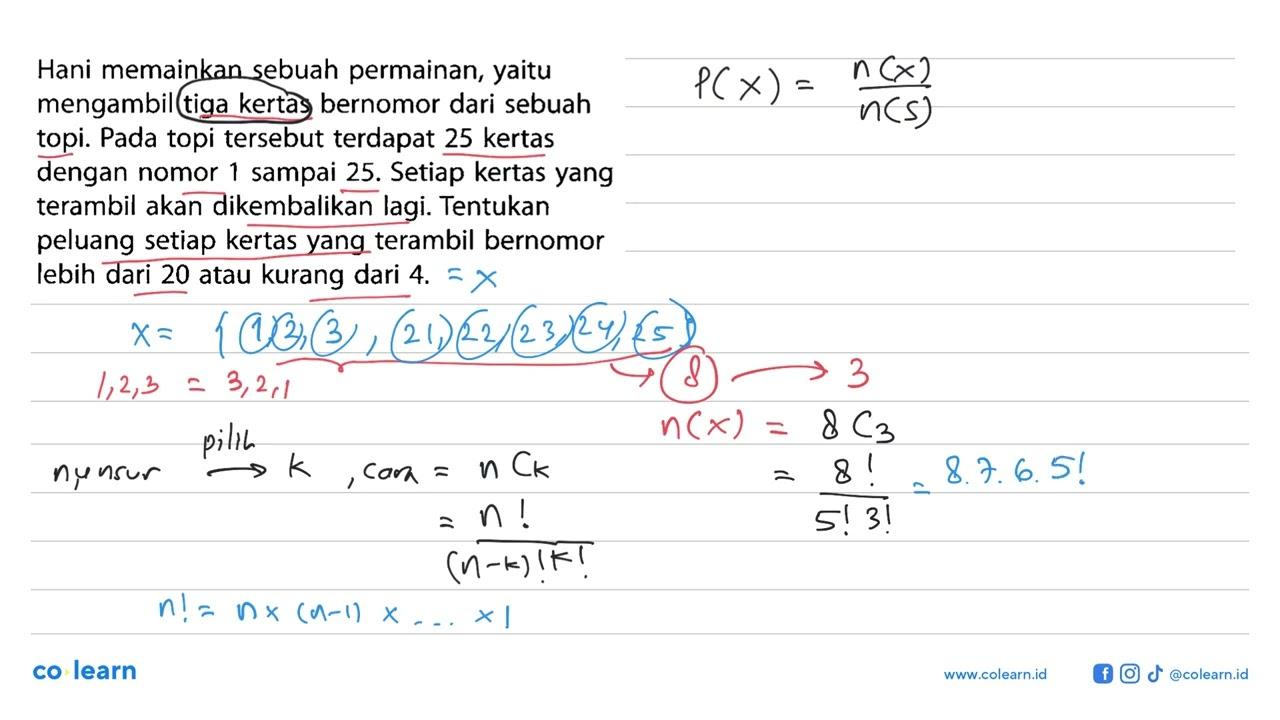 Hani memainkan sebuah permainan, yaitu
mengambil tiga kertas bernomor dari sebuah
topi. Pada topi tersebut terdapat 25 kertas
dengan nomor 1 sampai 25. Setiap kertas yang
terambil akan dikembalikan lagi. Tentukan
peluang setiap kertas yang terambil bernomor
lebih dari 20 atau kurang dari 4. = x
P(x) = n(x)/n(S)
x = { 1, 2, 3, 21, 22, 23, 24, 25 }
8 → 3
1, 2, 3 = 3, 2, 1
n(x) = 8C3
= 8!/5! 3! = 8.7.6.5!
n unsur pilih → k, cara = nCk
= n!/(n-k)! k!
n! = n x (n-1) x ... x 1
co learn
www.colearn.id
@colearn.id